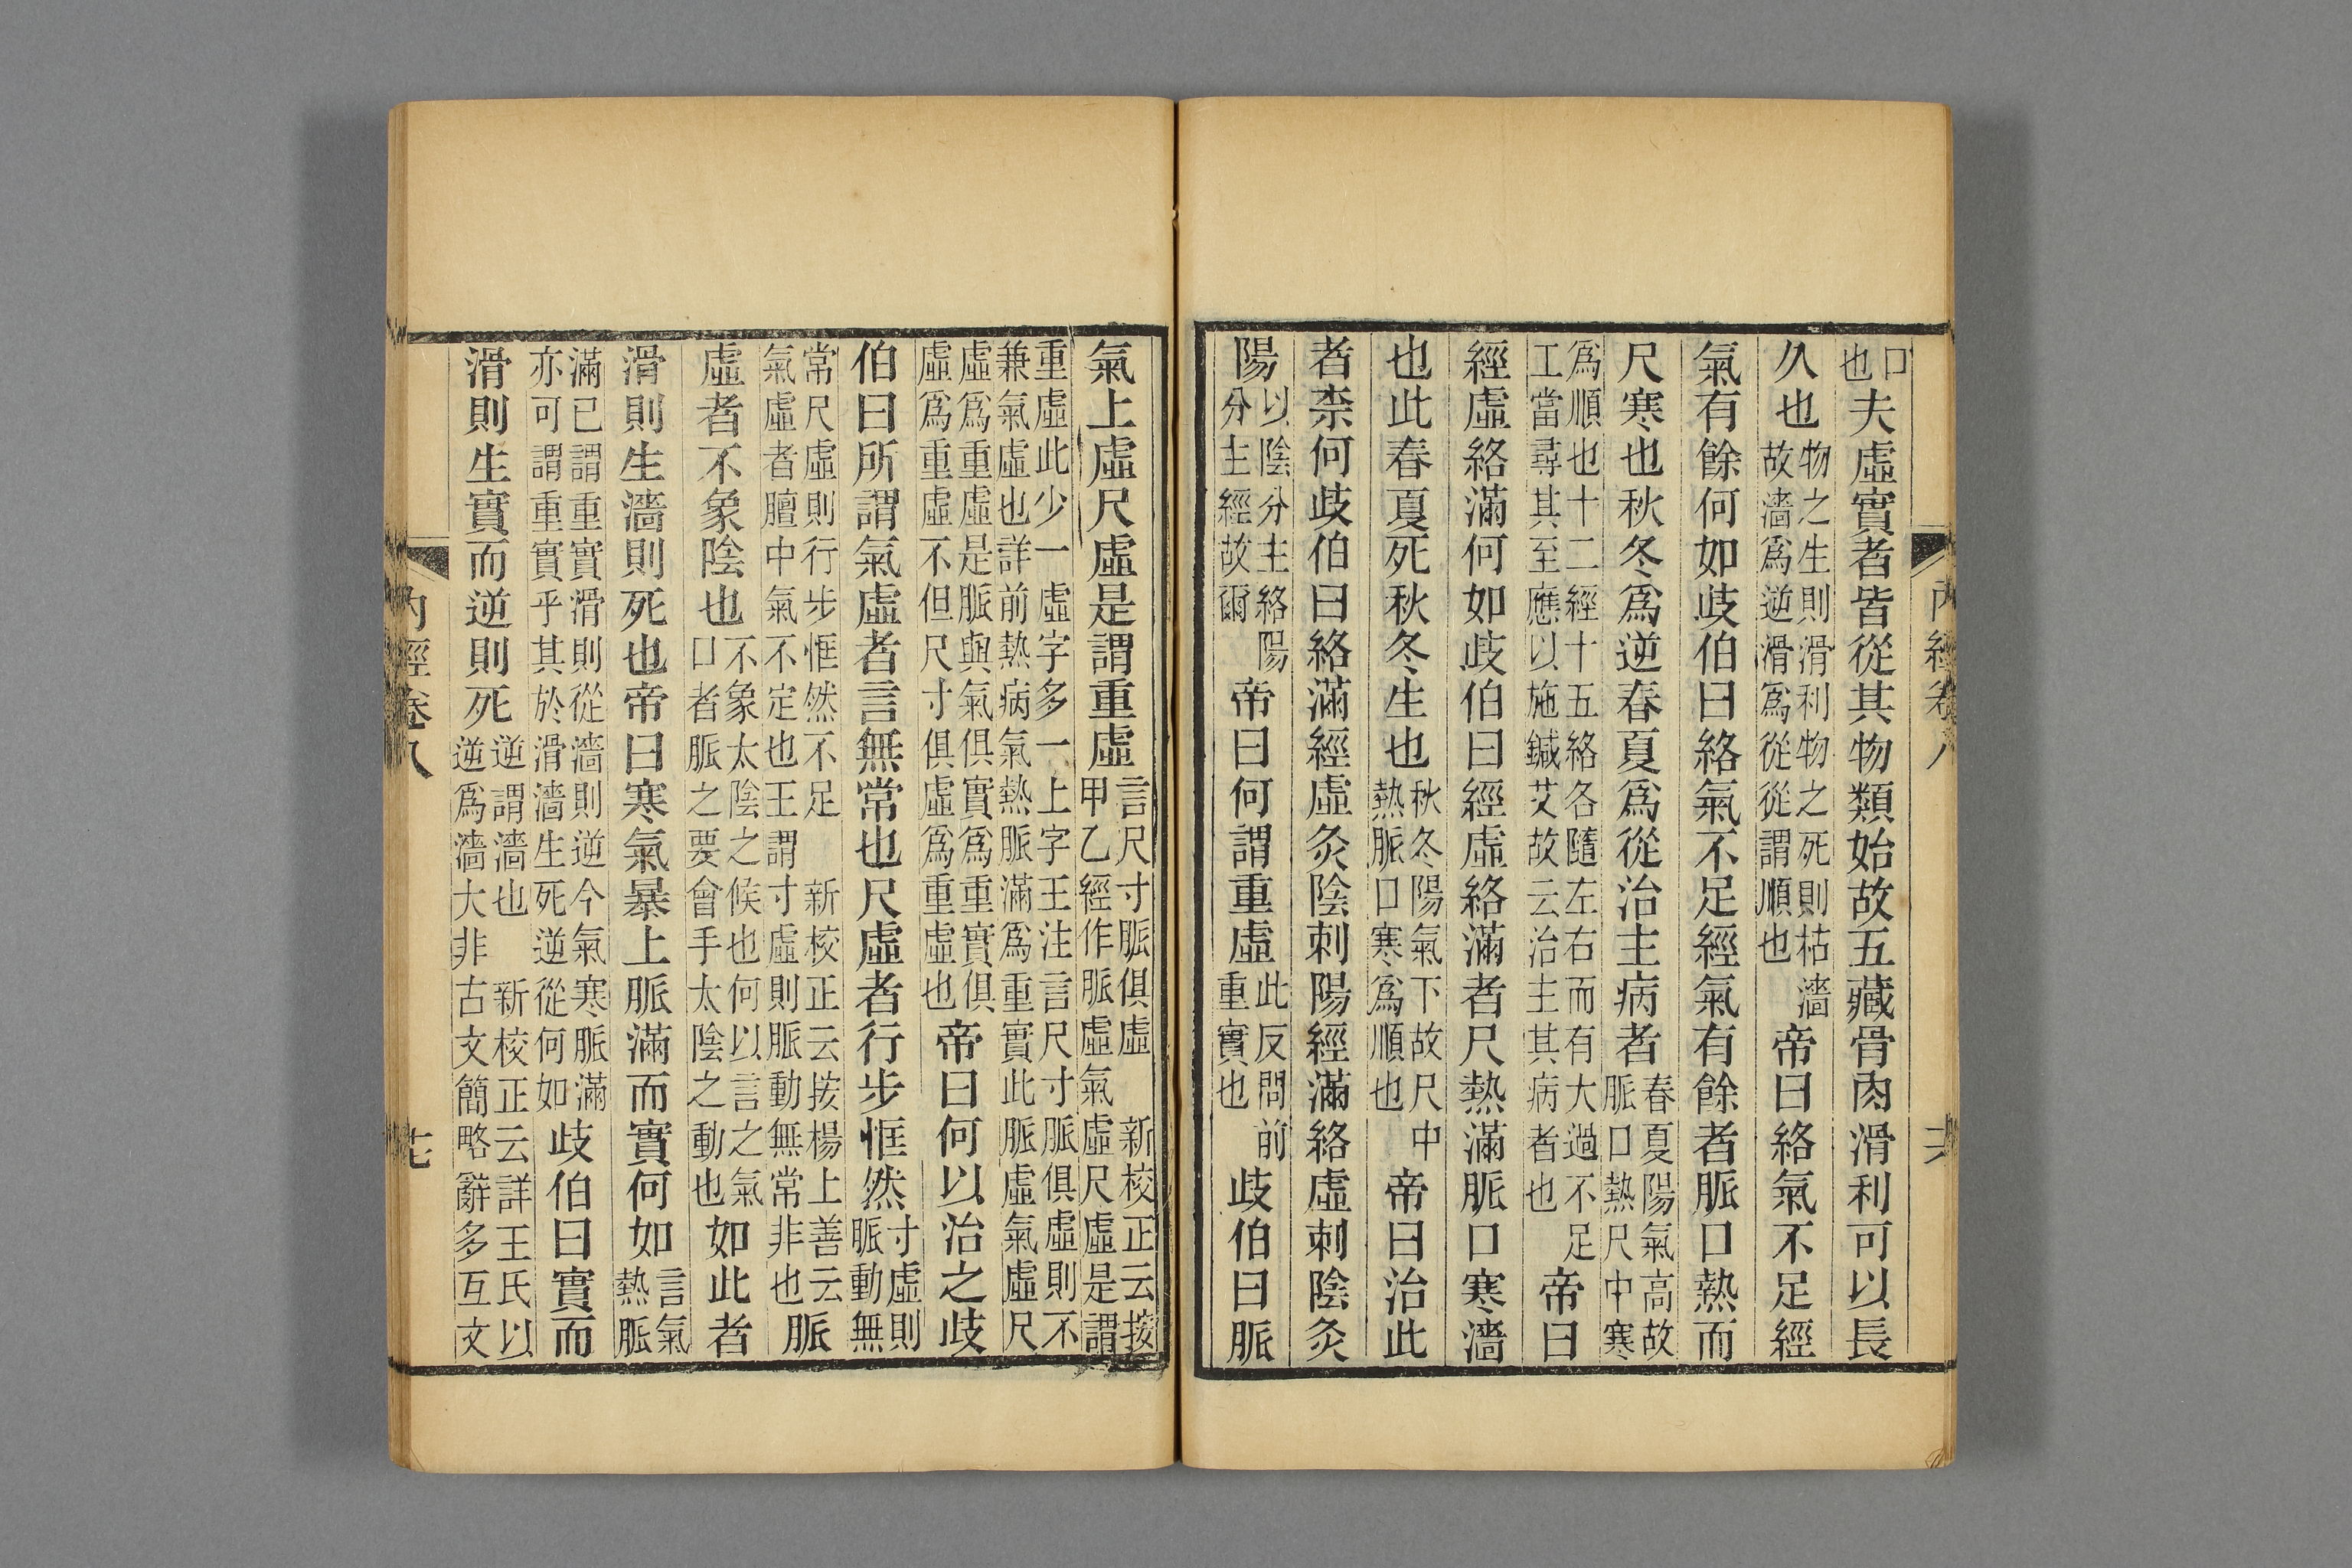 口也夫虛實者皆從其物類始故五藏骨肉滑利可以長
久也物之生則滑利物之死則枯濇故濇爲逆滑爲從從謂順也帝曰絡氣不足經
氣有餘何如歧伯曰絡氣不足經氣有餘者脈口熱而
尺寒也秋冬爲逆春夏爲從治主病者春夏陽氣高故脈口熱尺中寒
爲順也十二經十五絡各隨左右而有大過不足工當尋其至應以施鍼艾故云治主其病者也帝曰
經虛絡滿何如歧伯曰經虛絡滿者尺熱滿脈口寒濇
也此春夏死秋冬生也秋冬陽氣下故尺中熱脈口寒爲順也帝曰治此
者柰何歧伯曰絡滿經虛灸陰刺陽經滿絡虛刺陰灸
陽以陰分主絡陽分主經故爾帝曰何謂重虛此反問前重實也歧伯曰脈
內經卷八
氣上虛尺虛是謂重虛言尺寸脈俱虛 新校正云按甲乙經作脈虛氣虛尺虛是謂
重虛此少一虛字多一上字王注言尺寸脈俱虛則不兼氣虛也詳前熱病氣熱脈滿爲重實此脈虛氣虛尺
虛爲重虛是脈與氣俱實爲重實俱虛爲重虛不但尺寸俱虛爲重虛也帝曰何以治之歧
伯曰所謂氣虛者言無常也尺虛者行步恇然寸虛則脈動無
常尺虛則行步恇然不足 新校正云按楊上善云氣虛者膻中氣不定也王謂寸虛則脈動無常非也脈
虛者不象陰也不象太陰之候也何以言之氣口者脈之要會手太陰之動也如此者
滑則生濇則死也帝曰寒氣暴上脈滿而實何如言氣熱脈
滿已謂重實滑則從濇則逆今氣寒脈滿亦可謂重實乎其於滑濇生死逆從何如歧伯曰實而
滑則生實而逆則死逆謂濇也 新校正云詳王氏以逆爲濇大非古文簡略辭多互文
內經卷八